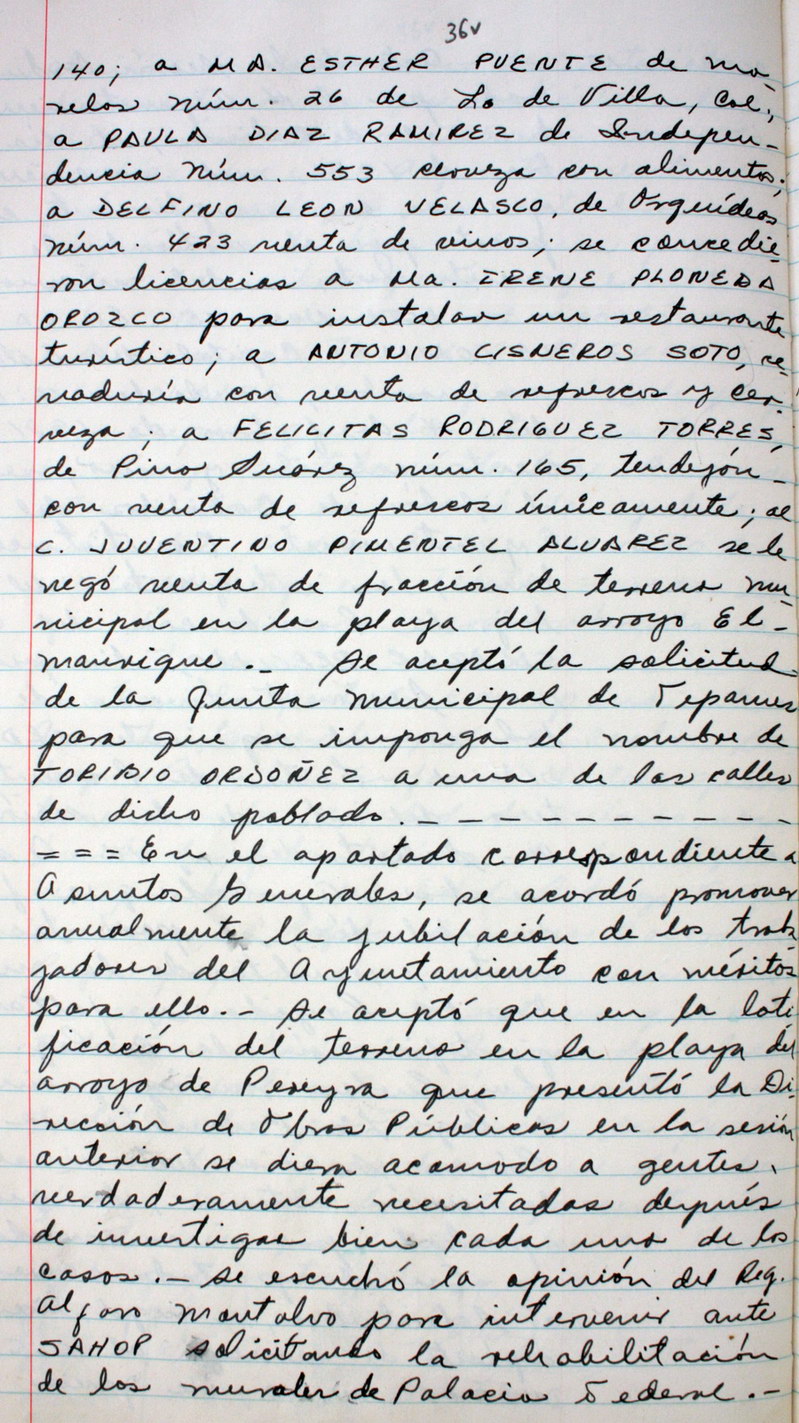 36v
140; a MA. ESTHER PUENTE de mo
relos núm. 26 de Lo de Villa, Col.;
a PAULA DIAZ RAMIREZ de Indepen-
dencia núm. 553 cerveza con alimentos;
a DELFINO LEON VELASCO, de Orquídeas
núm. 423 venta de vinos; se concedie
ron licencias a Ma. IRENE PLONEDA
OROZCO para instalar un restaurante
turístico; a ANTONIO CISNEROS SOTO, ce-
naduría con venta de refrescos y cer-
veza; a FELICITAS RODRIGUEZ TORRES,
de Pino Suárez núm. 165, tendejón-
con venta de refrescos únicamente; al
C. JUVENTINO PIMENTEL ALVAREZ se le
negó venta de fracción de terreno mu
nicipal en la playa del arroyo El-
manrique.- Se aceptó la solicitud
de la Junta Municipal de Tepames
para que se imponga el nombre de
TORIBIO ORDOÑEZ a una de las calles
de dicho poblado. - - - - - - - - - - -
= = = En el apartado correspondiente a
Asuntos Generales, se acordó promover
anualmente la jubilación de los traba
jadores del Ayuntamiento con méritos
para ello.- Se aceptó que en la loti
ficación del terreno en la playa del
arroyo de Pereyra que presentó la Di-
rección de Obras Públicas en la sesión
anterior se diera acomodo a gentes
verdaderamente necesitadas después
de investigar bien cada uno de los
casos.- Se escuchó la opinión del Reg.
Alfaro Montalvo para intervenir ante
SAHOP solicitando la rehabilitación
de los murales de Palacio Federal.-